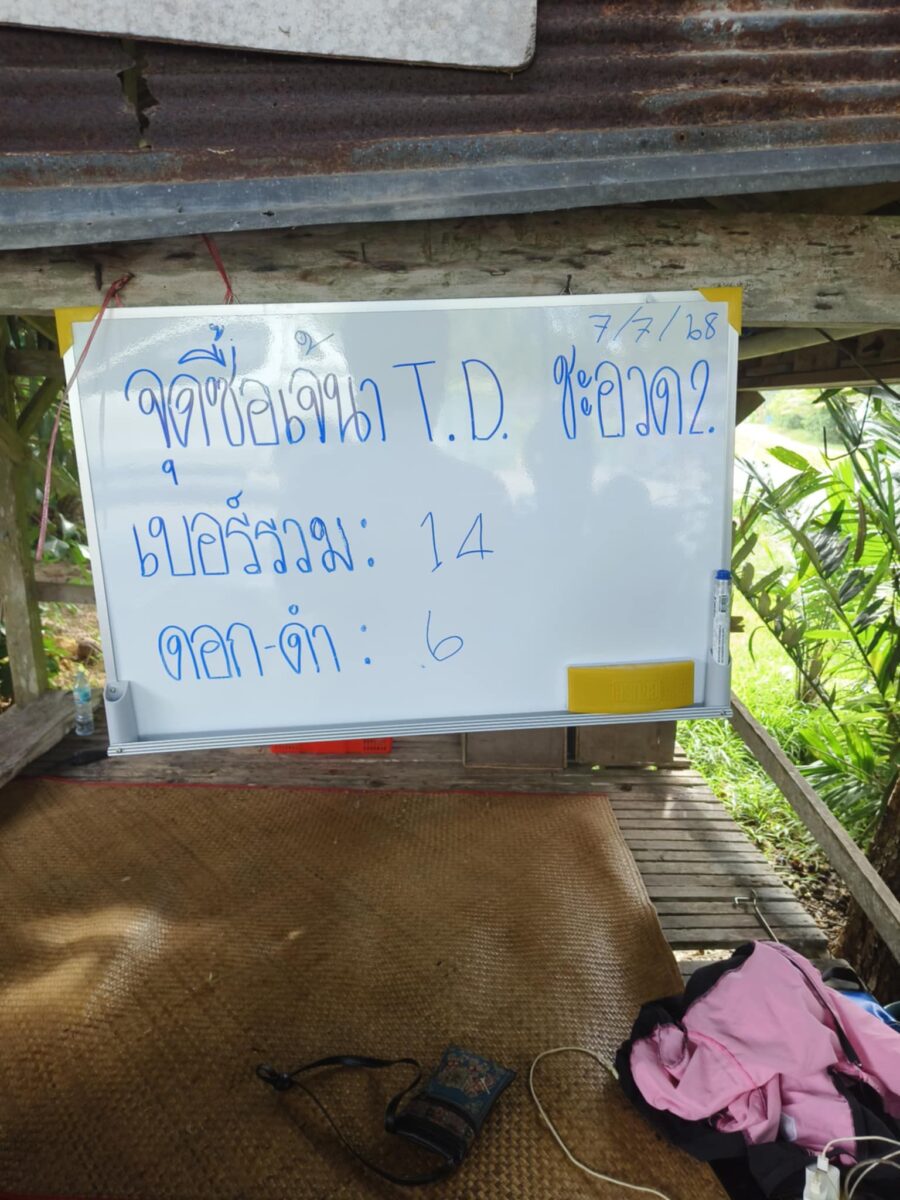 7/7/68
จุดซื้อเงาะนา T.D. ชะอวด2.
เบอร์รวม: 14
ดอก-ดำ: 6